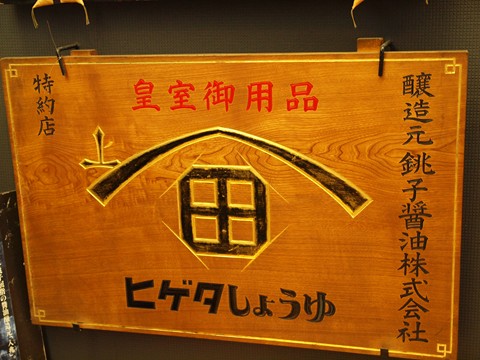 皇室御用品
醸造元 銚子醤油株式会社
特約店
上
田
ヒゲタしょうゆ